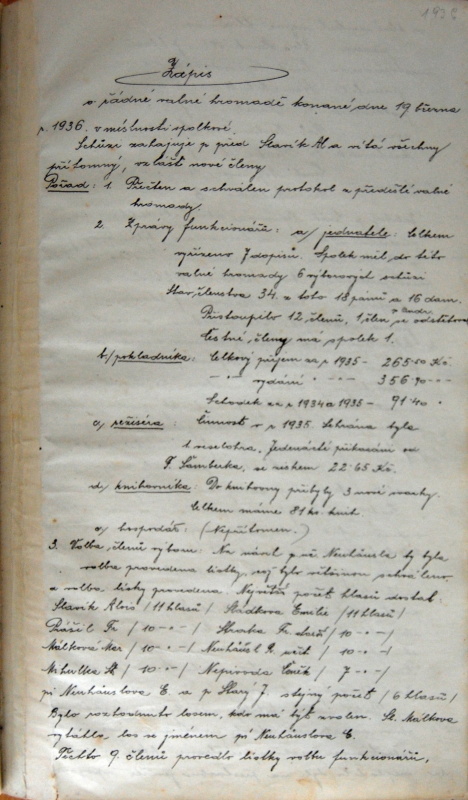 1936
Zápis
o řádné valné hromadě konané dne 19 března
r. 1936. v místnosti spolkové.
Schůzi zahajuje p. před. Slavík Al a vítá všechny
přítomný, vzláště nové členy.
Pořad: 1. Přečten a schválen protokol z předešlé valné
hromady.
2. Zprávy funkcionářů: a/ jednatele: Celkem
vyřízeno 7 dopisů. Spolek měl do této
valné hromady 6 výborových schůzí
Stav členstva 34. z toho 18 pánů a 16 dam.
Přistoupilo 12 členů, 1 člen se odstěhoval
Čestné členy má spolek 1.
b/ pokladníka: Celkový příjem za r 1935 - 265.50 Kč.
— „ — vydání „ „ „ 356.90 — „ —
Schodek za r 1934 a 1935 - 91.40 „
c/ režiséra: Činnost v r 1935. Sehrána byla
1 veselohra. Jedenácté přikázání od
F. Šamberka, se ziskem 22.65 Kč.
d. knihovníka: Do knihovny přibyly 3 nové svazky.
Celkem máme 81 ks. knih
e) hospodář: (Nepřítomen.)
3. Volba členů výboru: Na návrh p. uč. Neuhäusla by byla
volba provedena lístky, což bylo většinou schváleno
a volba lístky provedena. Největší počet hlasů dostal:
Slavík Alois / 11 hlasů / Sládková Emilie / 11 hlasů /
Prášil Fr. / 10 — „ — / Straka Fr. / 10 — „ — /
Málková Mar / 10 — „ — / Neuhäusl R. uč. / 10 — „ — /
Mihulka St / 10 — „ — / Nepivoda Čeněk / 7 — „ — /
pí Neuhäuslová E. a p Starý J. stejný počet / 6 hlasů /
Bylo rozhodnuto losem, kdo má být zvolen. Sl. Málková
vytáhla los se jménem pí Neuhäuslová E.
Těchto 9. členů provedlo lístky volbu funkcionářů.